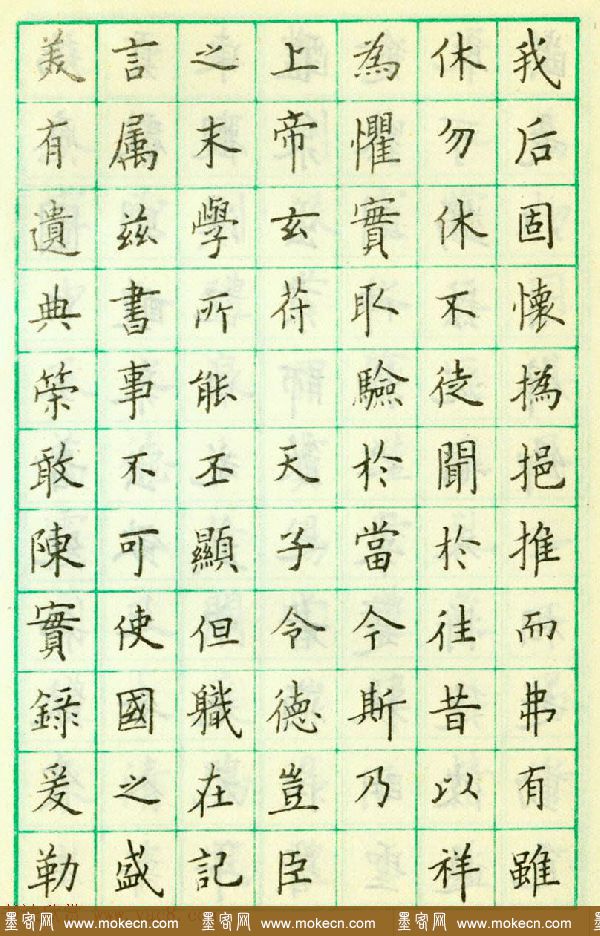 我后固懷撝挹推而弗有雖
休勿休不徒聞於往昔以祥
為懼實取驗於當今斯乃
上帝玄符天子令德豈臣
之末學所能丕顯但職在記
言属兹書事不可使國之盛
美有遺典策敢陳實錄爰勒
墨客网 www.mokecn.com 墨客网 www.mokecn.com 墨客网 www.mokecn.com 墨客网 www.mokecn.com